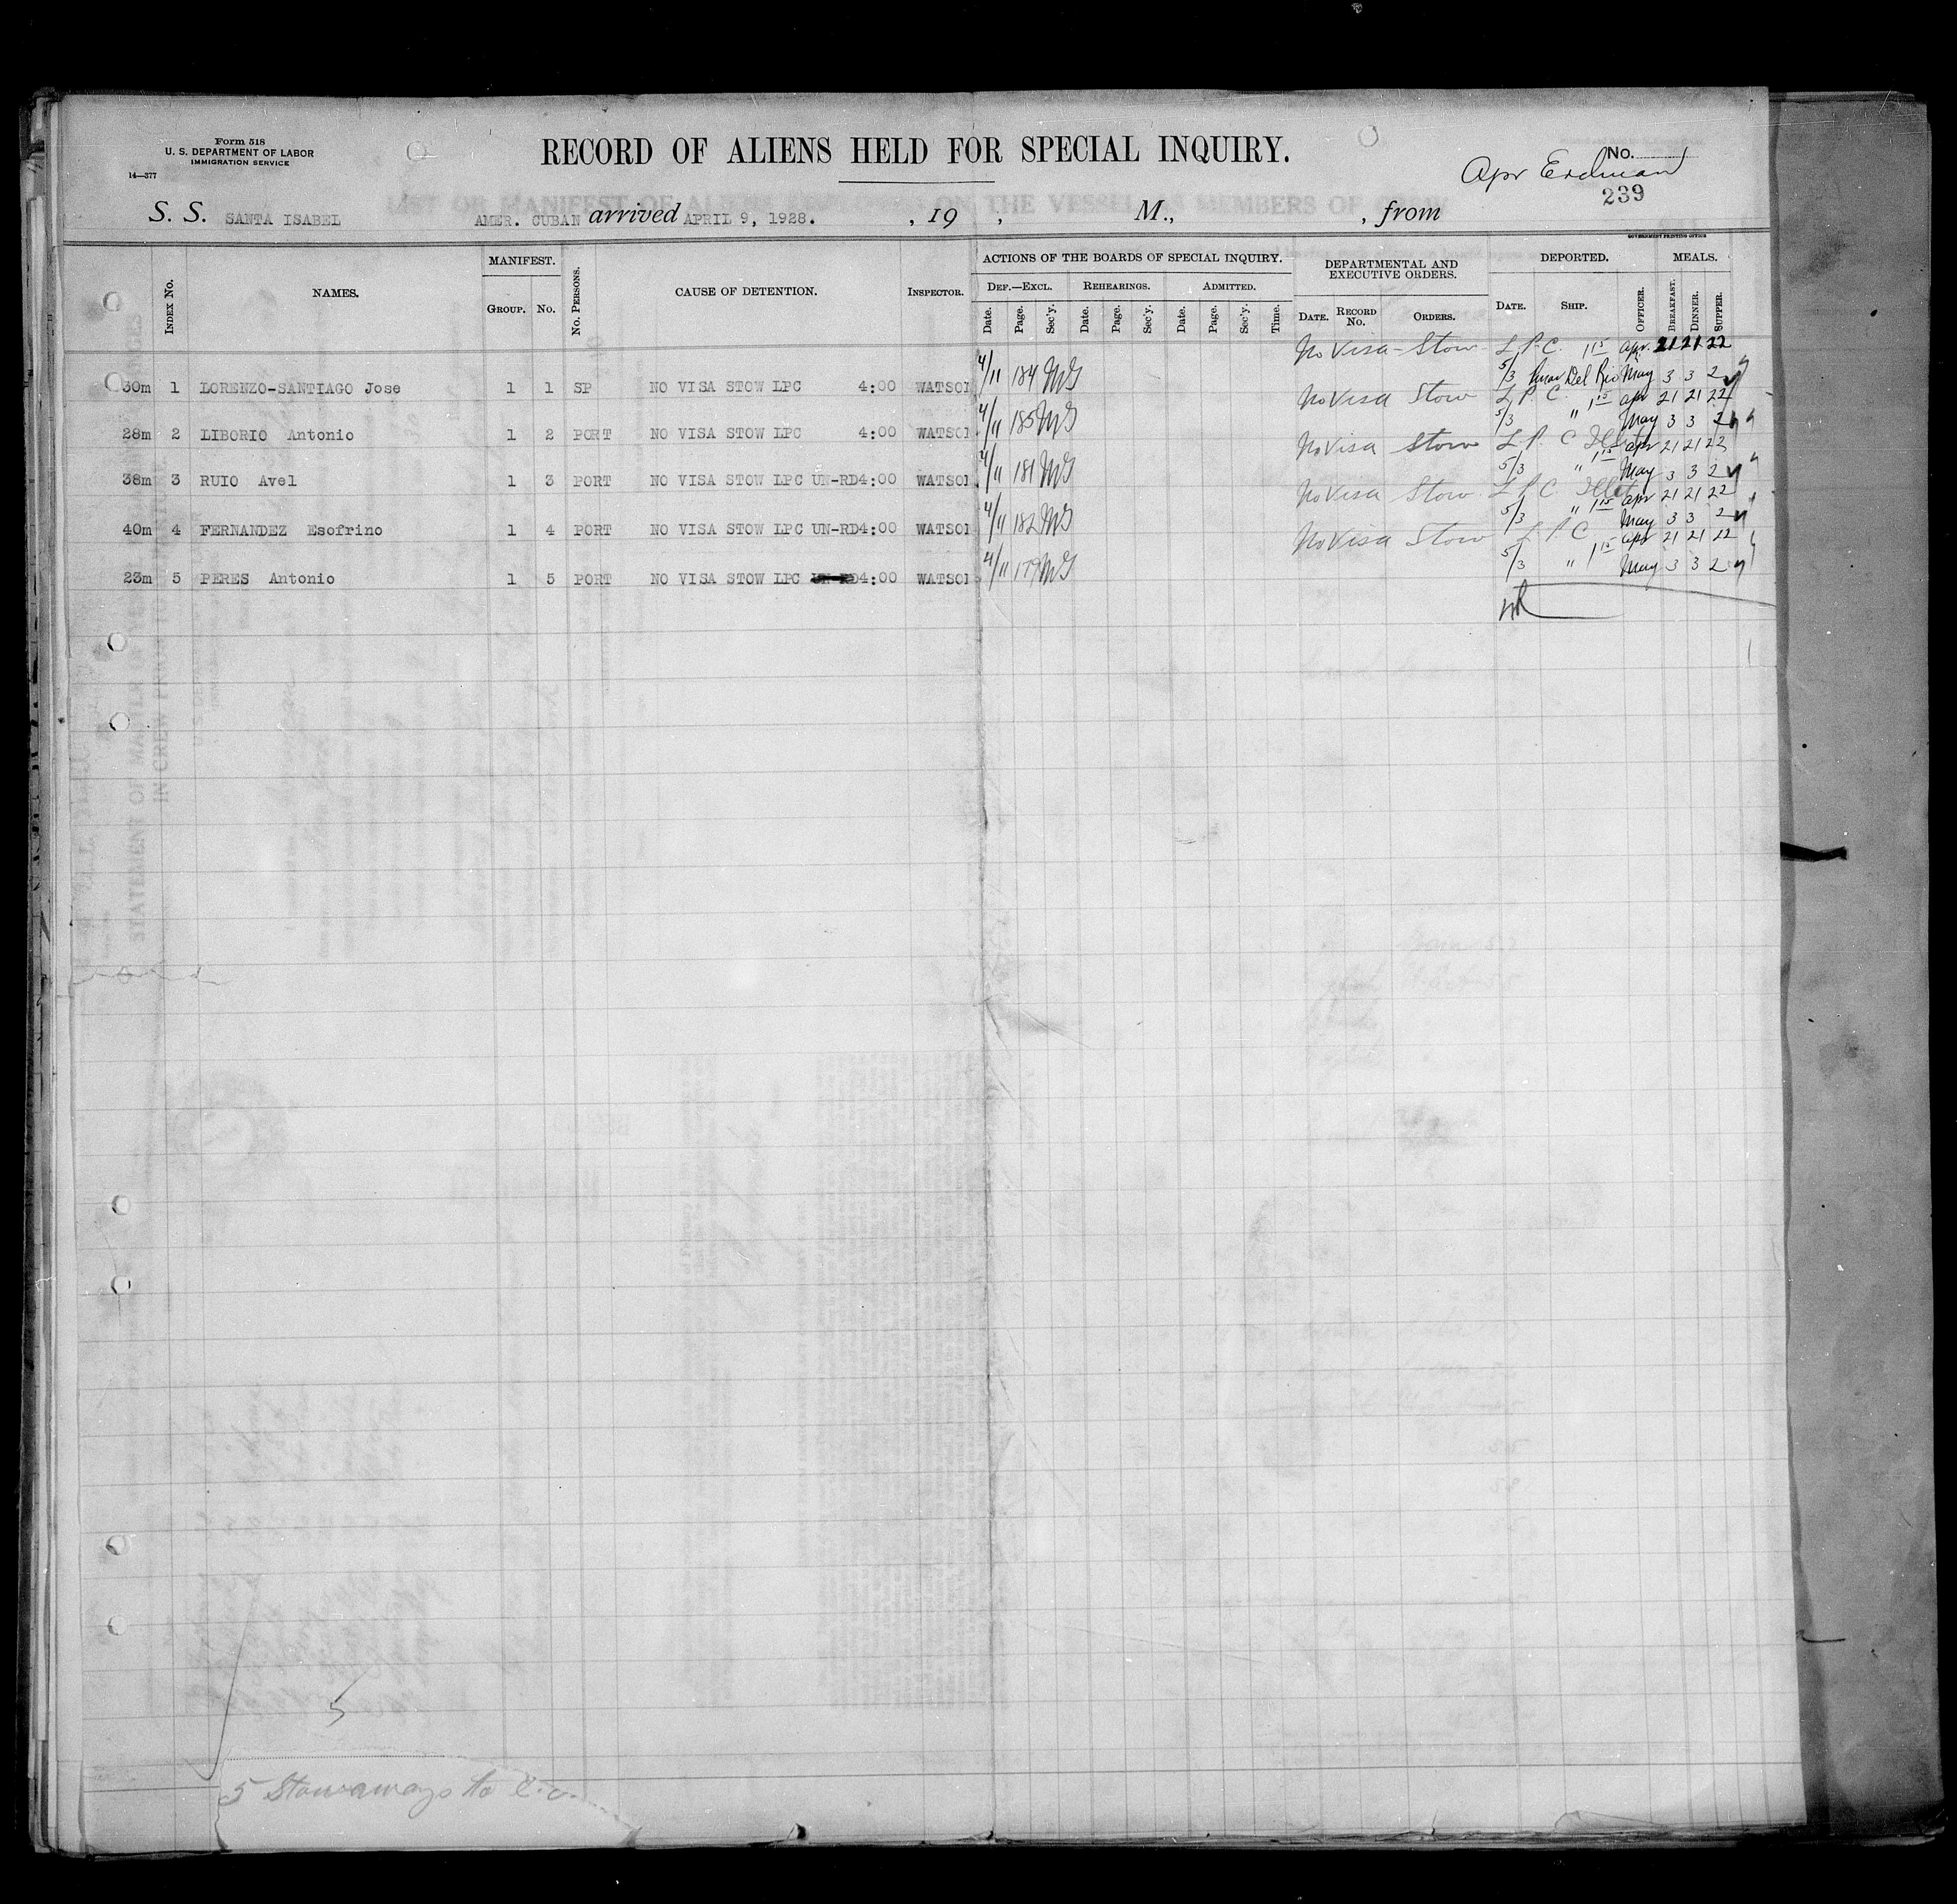 Form 518
U. S. DEPARTMENT OF LABOR
IMMIGRATION SERVICE
14—377
RECORD OF ALIENS HELD FOR SPECIAL INQUIRY.
No.
Apr Erdman
239
S. S. SANTA ISABEL AMER. CUBAN arrived APRIL 9, 1928. , 19 , M., , from
GOVERNMENT PRINTING OFFICE
MANIFEST. ACTIONS OF THE BOARDS OF SPECIAL INQUIRY. DEPARTMENTAL AND EXECUTIVE ORDERS. DEPORTED. MEALS.
DEF.—EXCL. REHEARINGS. ADMITTED.
INDEX NO. NAMES. GROUP. NO. NO. PERSONS. CAUSE OF DETENTION. INSPECTOR. Date. Page. Sec'y. Date. Page. Sec'y. Date. Page. Sec'y. Time. DATE. RECORD NO. ORDERS. DATE. SHIP. OFFICER. BREAKFAST. DINNER. SUPPER.
No Visa - Stow L. P. C. 1 15 Apr. 21 21 22
30m 1 LORENZO-SANTIAGO Jose 1 1 SP NO VISA STOW LPC 4:00 WATSON 4/11 184 MG 5/3 Pinar Del Rio May 3 3 2
No Visa Stow L. P. C. 1 15 Apr 21 21 22
28m 2 LIBORIO Antonio 1 2 PORT NO VISA STOW LPC 4:00 WATSON 4/11 185 MG 5/3 " May 3 3 2
No Visa Stow L. P. C Illit 1 15 Apr 21 21 22
38m 3 RUIO Avel 1 3 PORT NO VISA STOW LPC UN-RD4:00 WATSON 4/11 181 MG 5/3 " May 3 3 2
No Visa Stow L P C Illit 1 15 Apr 21 21 22
40m 4 FERNANDEZ Esofrino 1 4 PORT NO VISA STOW LPC UN-RD4:00 WATSON 4/11 182 MG 5/3 " May 3 3 2
No Visa Stow L P C 1 15 Apr 21 21 22
23m 5 PERES Antonio 1 5 PORT NO VISA STOW LPC UN-RD4:00 WATSON 4/11 179 MG 5/3 " May 3 3 2
5
5 Stowaways to